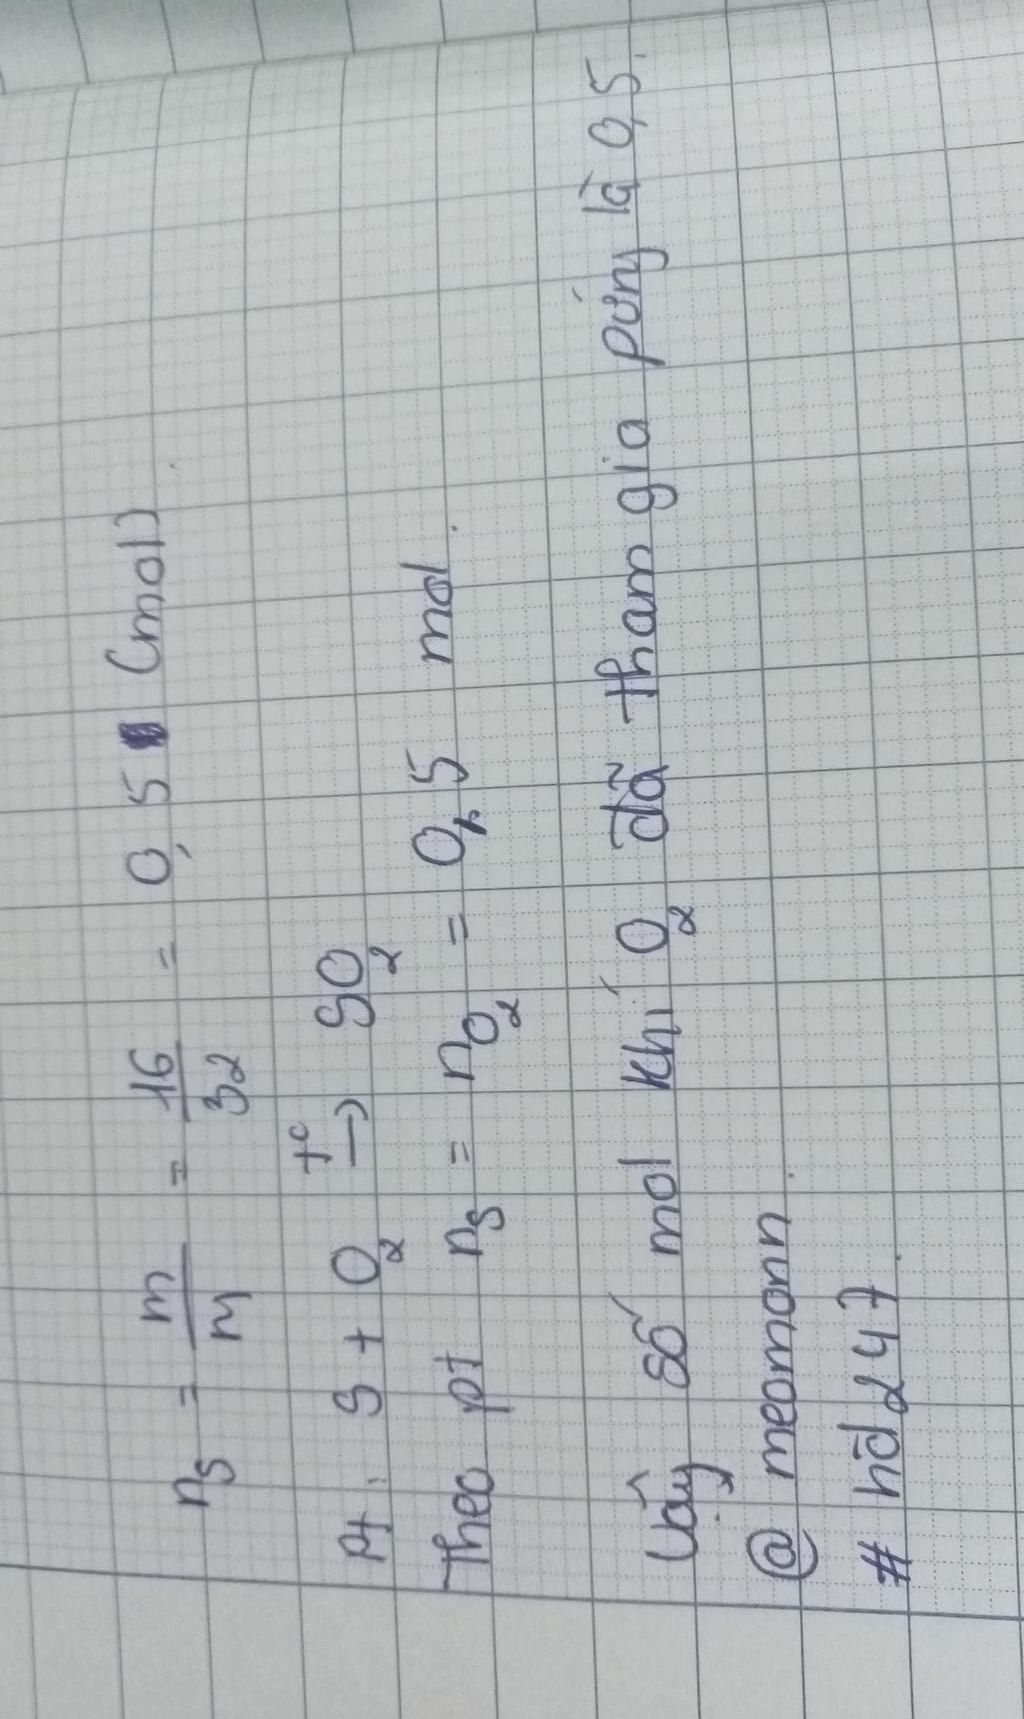 nS = m/M = 16/32 = 0,5 (mol)
Pt: S + O2 t° → SO2
Theo pt nS = nO2 = 0,5 mol.
Vậy số mol khí O2 đã tham gia pứng là 0,5.
@ meomonn.
# hd247.